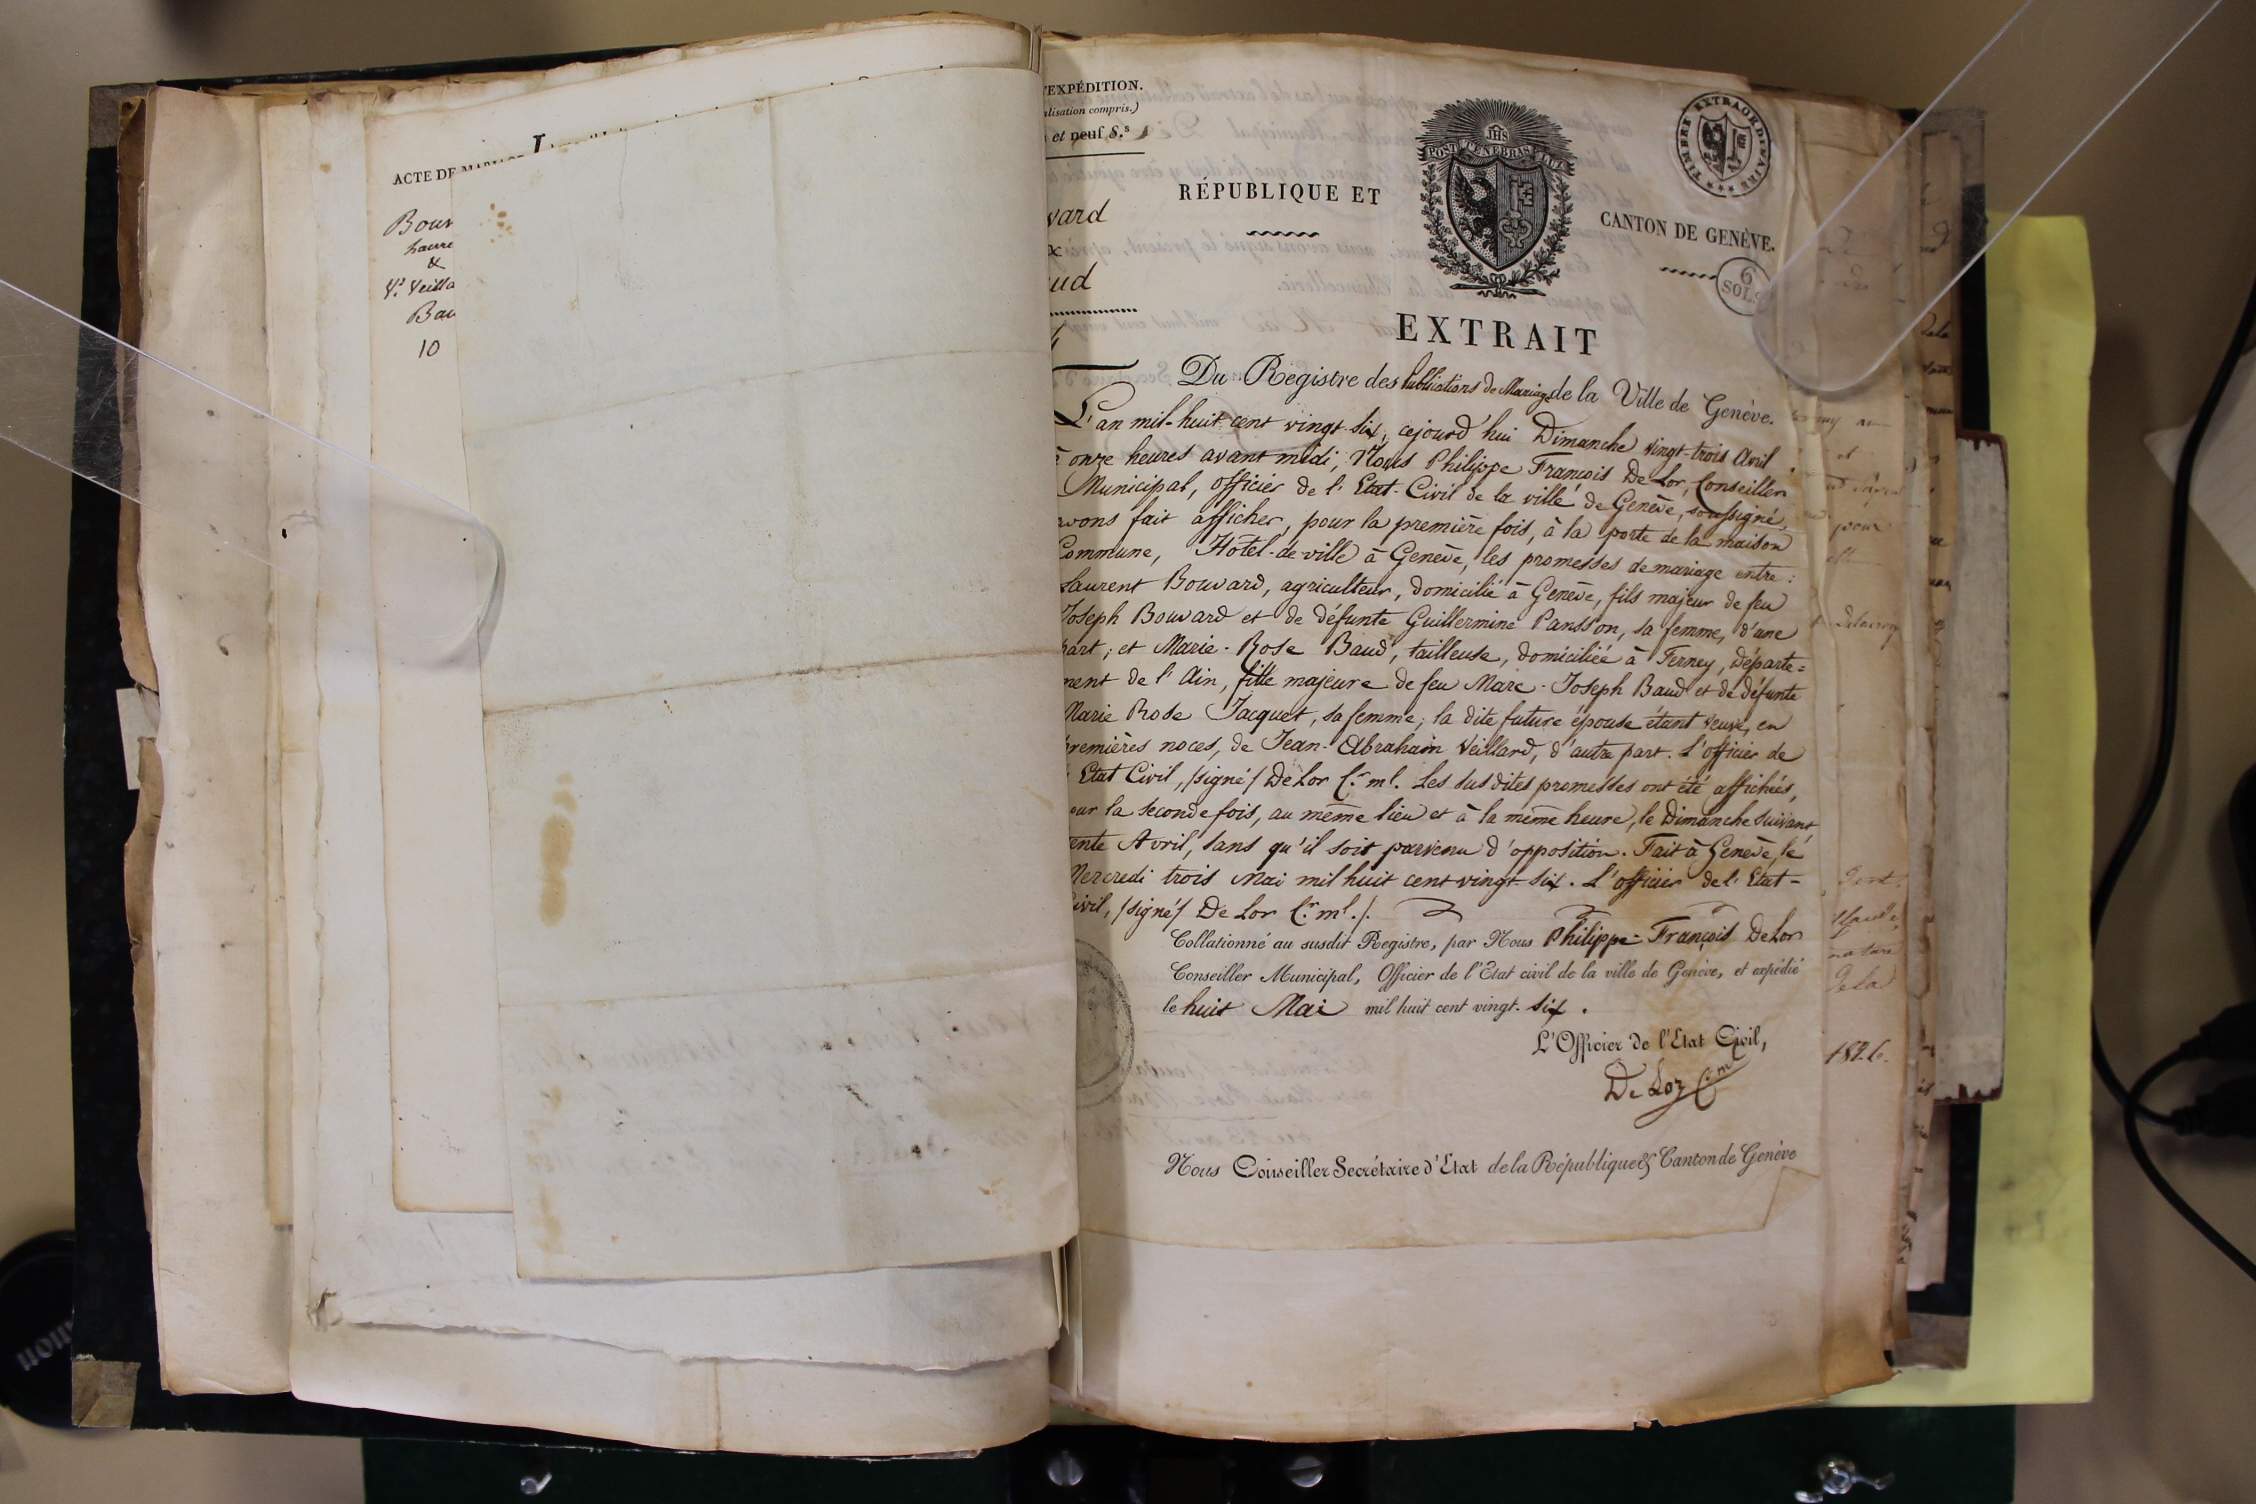 ACTE DE MARIAGE
Bouv
Laure
&
Vᵉ Veilla
Bau
10
'EXPÉDITION.
alisation compris.)
s et neuf S.ˢ
vard
&
ud
RÉPUBLIQUE ET
CANTON DE GENÈVE.
JHS
POST TENEBRAS LUX
TIMBRE EXTRAORDINAIRE
6
SOLS
EXTRAIT
Du Registre des Publications de Mariage de la Ville de Genève.
L'an mil-huit cent vingt-six, cejourd'hui Dimanche vingt-trois Avril
à onze heures avant midi, Nous Philippe François De Lor, Conseiller
Municipal, officier de l'Etat-Civil de la ville de Genève, soussigné,
avons fait afficher, pour la première fois, à la porte de la maison
Commune, Hotel-de-ville à Genève, les promesses de mariage entre:
Laurent Bouvard, agriculteur, domicilié à Genève, fils majeur de feu
Joseph Bouvard et de défunte Guillermine Pansson, sa femme, d'une
part; et Marie-Rose Baud, tailleuse, domiciliée à Ferney, départe=
ment de l'Ain, fille majeure de feu Marc-Joseph Baud et de défunte
Marie Rose Jacquet, sa femme; la dite future épouse étant veuve, en
premières noces, de Jean-Abraham Veillard, d'autre part. L'officier de
l'Etat Civil, /signé/ De Lor C.ʳ mˡ. Les susdites promesses ont été affichées,
our la seconde fois, au même lieu et à la même heure, le Dimanche suivant,
ente Avril, sans qu'il soit parvenu d'opposition. Fait à Genève, le
Mercredi trois Mai mil huit cent vingt-six. L'officier de l'Etat-
Civil, /signé/ De Lor C.ʳ mˡ./.
Collationné au susdit Registre, par Nous Philippe-François De Lor
Conseiller Municipal, Officier de l'Etat civil de la ville de Genève, et expédié
le huit Mai mil huit cent vingt-six.
L'Officier de l'Etat Civil,
De Lor C.ʳ m
Nous Conseiller Secrétaire d'Etat de la République & Canton de Genève
pour
Dela
1826.